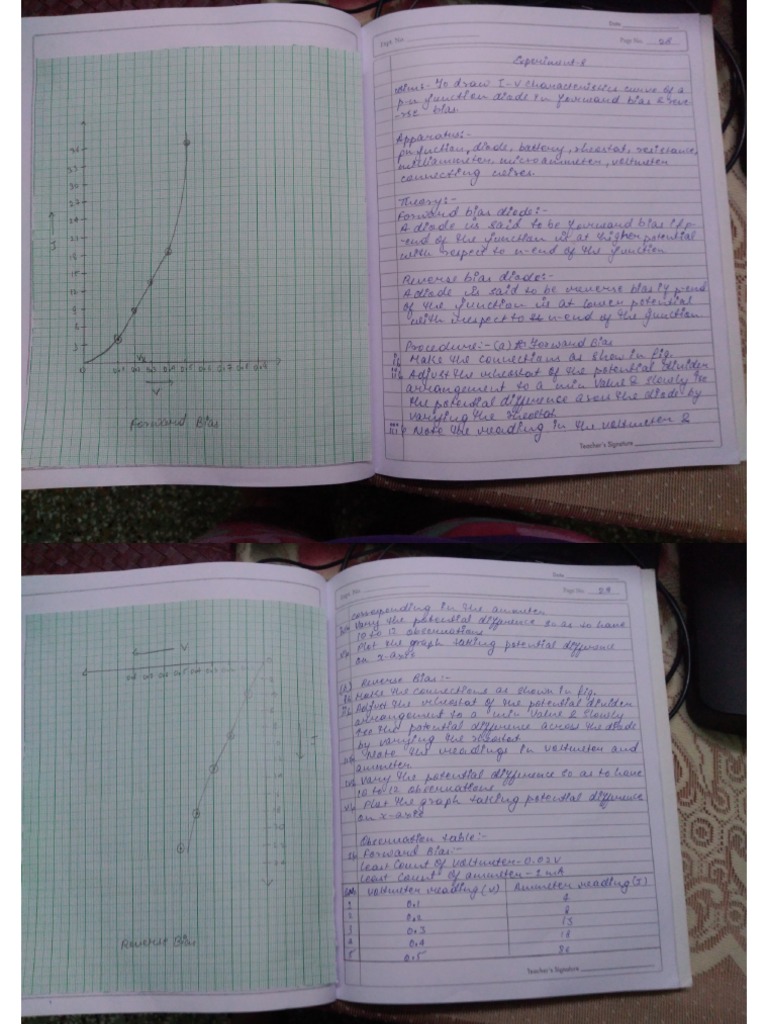 36
33
30
27
24
21
18
15
12
9
6
3
0 0.1 0.2 0.3 0.4 0.5 0.6 0.7 0.8 0.9
V
Forward Bias
Date
Expt. No.
Page No. 28
Experiment-8
Aim:- To draw I-V characteristics curve of a
p-n junction diode in forward bias & reve
-rse bias.
Apparatus:-
pn junction, diode, battery, rheostat, resistance,
milliammeter, microammeter, voltmeter
connecting wires.
Theory:-
Forward bias diode:-
A diode is said to be forward bias if p-
-end of the junction is at higher potential
with respect to n-end of the junction.
Reverse bias diode:-
A diode is said to be reverse bias if p-end
of the junction is at lower potential
with respect to n-end of the junction.
Procedure:- (a) Forward Bias
i) Make the connections as show in fig.
ii) Adjust the rheostat of the potential divider
arrangement to a min value & slowly
the potential difference across the diode by
varying the rheostat
iii) Note the reading in the voltmeter &
Teacher's Signature
V
I
Reverse Bias
Date
Expt. No.
Page No. 29
corresponding in the ammeter
Vary the potential difference so as to have
10 to 12 observations
Plot the graph taking potential difference
on x-axis
Reverse Bias:-
Make the connections as shown in fig.
Adjust the rheostat of the potential divider
arrangement to a min value & slowly
the potential difference across the diode
by varying the rheostat
Note the readings in voltmeter and
ammeter.
Vary the potential difference so as to have
10 to 12 observations
Plot the graph taking potential difference
on x-axis
Observation table:-
Forward Bias:-
Least count of voltmeter-0.02V
Least count of ammeter-1 mA
Voltmeter reading (v) Ammeter reading (I)
1 0.1
2 0.2
3 0.3 13
4 0.4 18
5 0.5
Teacher's Signature